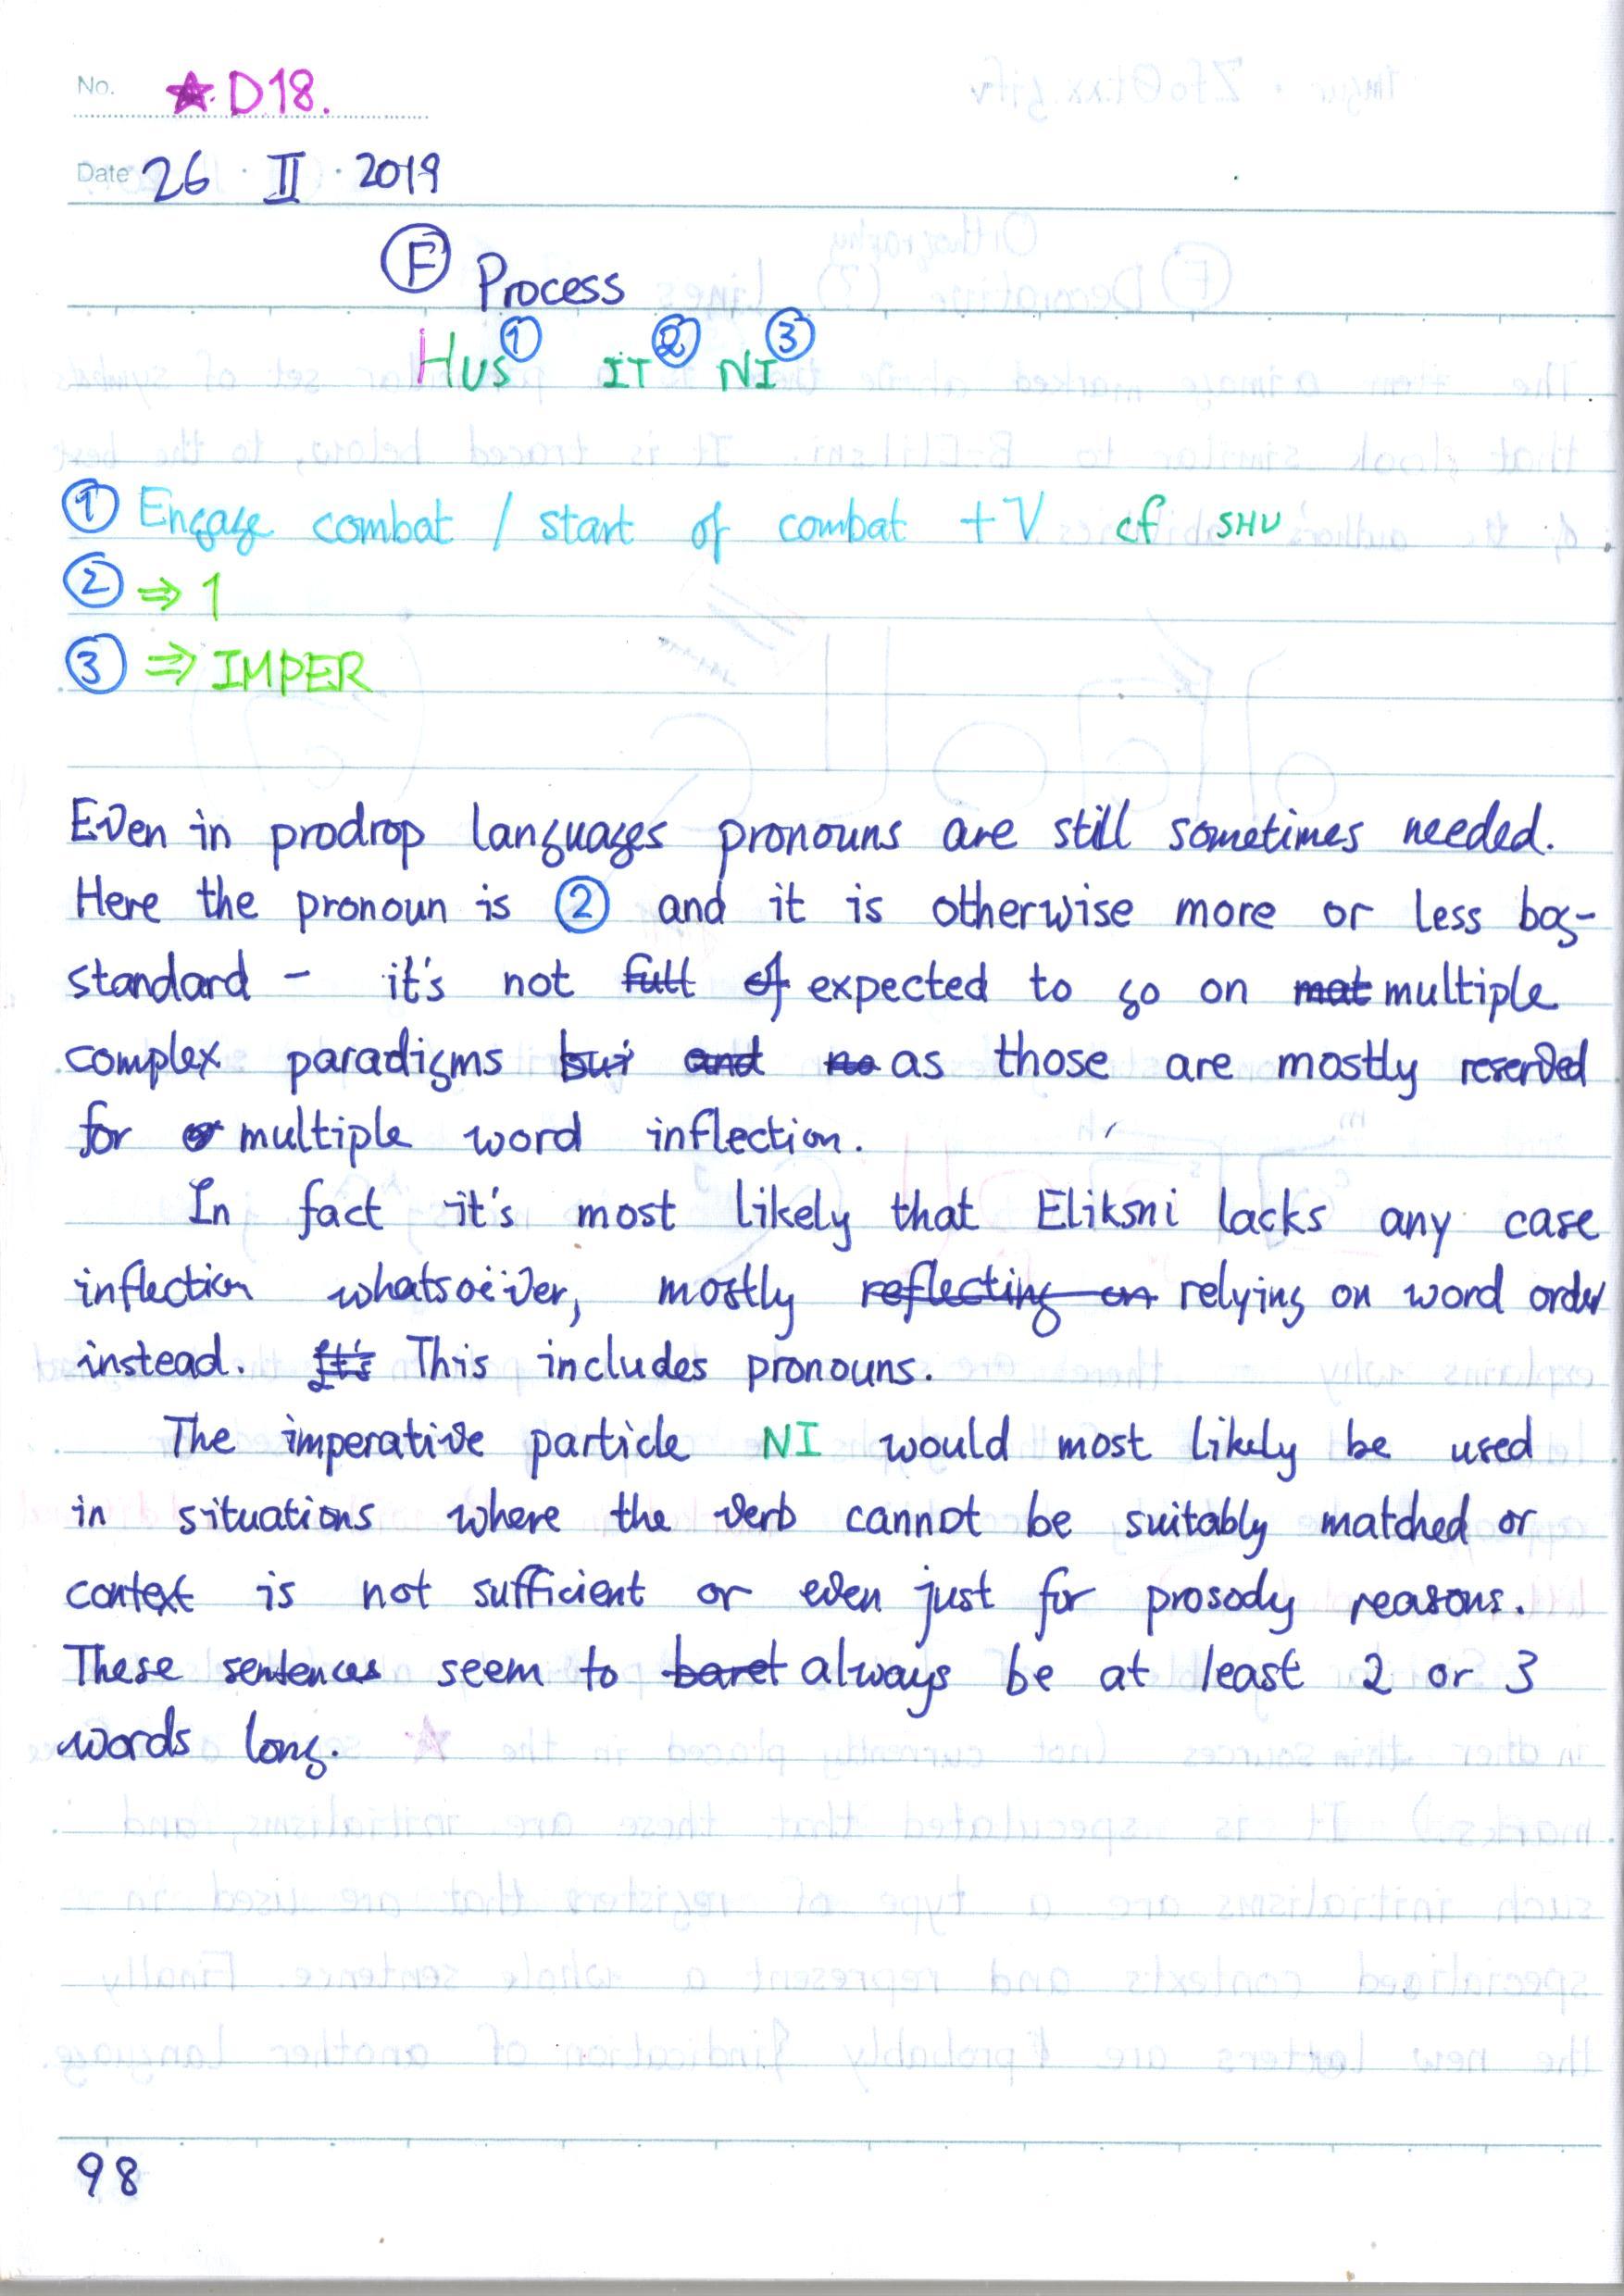 No. ★ D18.
Date 26 · II · 2019
Ⓕ Process
HUS ① IT ② NI ③
① Engage combat / start of combat +V cf SHU
② ⇒ 1
③ ⇒ IMPER
Even in prodrop languages pronouns are still sometimes needed.
Here the pronoun is ② and it is otherwise more or less bog-
standard - it's not full of expected to go on mat multiple
complex paradigms but and no as those are mostly reserved
for or multiple word inflection.
In fact it's most likely that Eliksni lacks any case
inflection whatsoëver, mostly reflecting on relying on word order
instead. It's This includes pronouns.
The imperative particle NI would most likely be used
in situations where the verb cannot be suitably matched or
context is not sufficient or even just for prosody reasons.
These sentences seem to baret always be at least 2 or 3
words long.
98